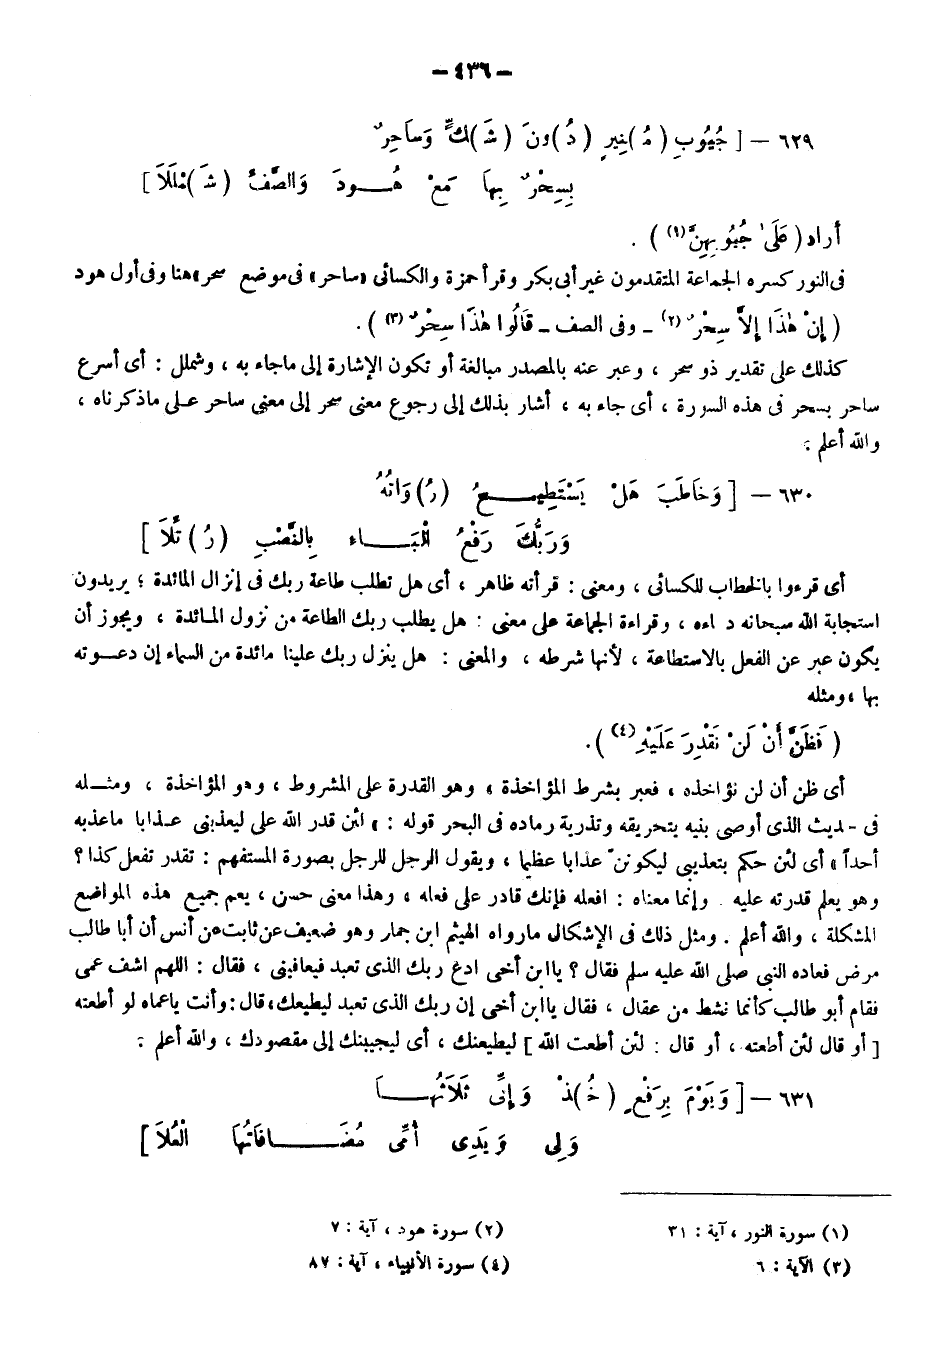 – ٤٣٦ –
٦٢٩ – [ جُيُوبِ (مُ)نِيرٍ (دُ)ونَ (شَ)كٍّ وَسَاحِرٌ
بِسِحْرٌ بِهَا مَعْ هُودَ وَالصَّفُّ (شَ)مْلَلَا ]
أراد ( عَلَىٰ جُيُوبِهِنَّ (١) ) .
فى النور كسره الجماعة المتقدمون غير أبى بكر وقرأ حمزة والكسائى «ساحر» فى موضع سحر» هنا وفى أول هود
( إِنْ هَٰذَا إِلَّا سِحْرٌ (٢) – وفى الصف – قَالُوا هَٰذَا سِحْرٌ (٣) ) .
كذلك على تقدير ذو سحر ، وعبر عنه بالمصدر مبالغة أو تكون الإشارة إلى ماجاء به ، وشملل : أى أسرع
ساحر بسحر فى هذه السورة ، أى جاء به ، أشار بذلك إلى رجوع معنى سحر إلى معنى ساحر على ماذكرناه ،
والله أعلم .
٦٣٠ – [ وَخَاطَبَ هَلْ يَسْتَطِيعُ (رُ)وَاتُهُ
وَرَبُّكَ رَفْعُ الْبَاءِ بِالنَّصْبِ (رُ)تِّلَا ]
أى قرءوا بالخطاب للكسائى ، ومعنى : قرأته ظاهر ، أى هل تطلب طاعة ربك فى إنزال المائدة ؛ يريدون
استجابة الله سبحانه دعاءه ، وقراءة الجماعة على معنى : هل يطلب ربك الطاعة من نزول المائدة ، ويجوز أن
يكون عبر عن الفعل بالاستطاعة ، لأنها شرطه ، والمعنى : هل ينزل ربك علينا مائدة من السماء إن دعوته
بها ، ومثله
( فَظَنَّ أَنْ لَنْ نَقْدِرَ عَلَيْهِ (٤) ) .
أى ظن أن لن نؤاخذه ، فعبر بشرط المؤاخذة ، وهو القدرة على المشروط ، وهو المؤاخذة ، ومثله
فى حديث الذى أوصى بنيه بتحريقه وتذرية رماده فى البحر قوله : «ائن قدر الله على ليعذبنى عذابا ماعذبه
أحداً» أى لئن حكم بتعذيبى ليكونن عذابا عظيما ، ويقول الرجل للرجل بصورة المستفهم : تقدر تفعل كذا ؟
وهو يعلم قدرته عليه . وإنما معناه : افعله فإنك قادر على فعله ، وهذا معنى حسن ، يعم جميع هذه المواضع
المشكلة ، والله أعلم . ومثل ذلك فى الإشكال مارواه الهيثم ابن جمار وهو ضعيف عن ثابت عن أنس أن أبا طالب
مرض فعاده النبى صلى الله عليه سلم فقال ؟ يا ابن أخى ادع ربك الذى تعبد فيعافينى ، فقال : اللهم اشف عمى
فقام أبو طالب كأنما نشط من عقال ، فقال يا ابن أخى إن ربك الذى تعبد ليطيعك ، قال : وأنت ياعماه لو أطعته
[ أو قال لئن أطعته ، أو قال : لئن أطعت الله ] ليطيعنك ، أى ليجيبنك إلى مقصودك ، والله أعلم .
٦٣١ – [ وَيَوْمَ بِرَفْعٍ (خُ)ذْ وَإِنِّى ثَلَاثُهَا
وَلِى وَيَدِى أُمِّى مُضَافَاتُهَا الْعُلَا ]
(١) سورة النور ، آية : ٣١
(٢) سورة هود ، آية : ٧
(٣) الآية : ٦
(٤) سورة الأنبياء ، آية : ٨٧